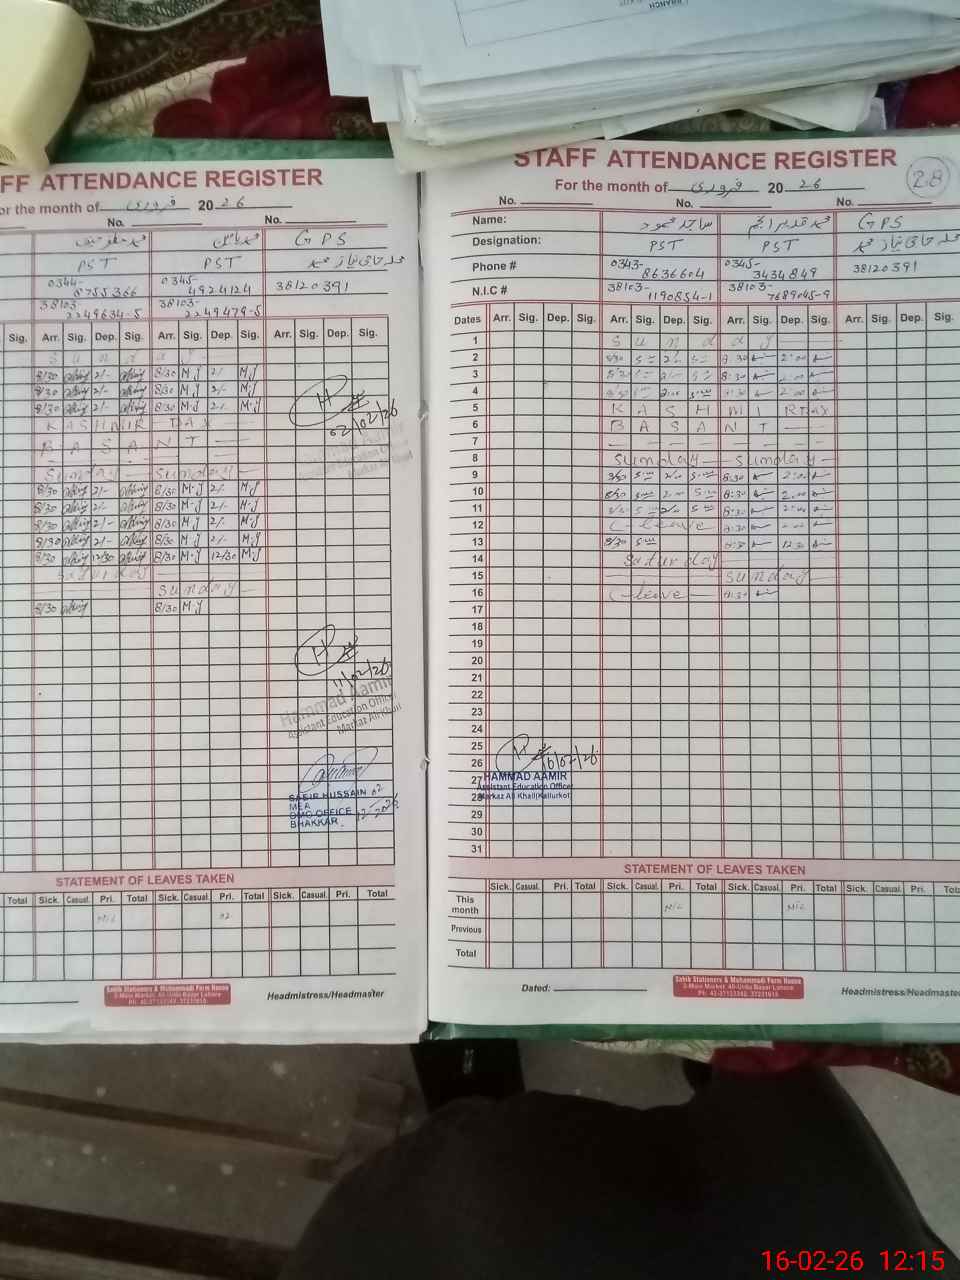 BRANCH
FF ATTENDANCE REGISTER
or the month of فروری 20 26
No. No.
محمد کامل GPS
PST PST
0344-8755366 0345-4924124 38120391
38103-2249634-5 38103-2249479-5
Sig. Arr. Sig. Dep. Sig. Arr. Sig. Dep. Sig. Arr. Sig. Dep. Sig.
Sunday
8/30 2/- 8/30 M.J 2/- M.J
8/30 2/- 8/30 M.J 2/- M.J
8/30 2/- 8/30 M.J 2/- M.J
KASHMIR DAY
BASANT
Sunday Sunday
8/30 2/- 8/30 M.J 2/- M.J
8/30 2/- 8/30 M.J 2/- M.J
8/30 2/- 8/30 M.J 2/- M.J
8/30 2/- 8/30 M.J 2/- M.J
8/30 12/30 8/30 M.J 12/30 M.J
Saturday
Sunday
8/30 8/30 M.J
H
02/02/26
H
11/02/26
Hammad Aamir
Assistant Education Officer
Markaz Ali Khail
SABIR HUSSAIN
MEA
DMO OFFICE
BHAKKAR
STATEMENT OF LEAVES TAKEN
Total Sick. Casual. Pri. Total Sick. Casual Pri. Total Sick. Casual. Pri. Total
Nil 02
Sabik Stationers & Muhammadi Form House
Headmistress/Headmaster
STAFF ATTENDANCE REGISTER
28
For the month of فروری 20 26
No. No. No.
Name: ساجد محمود GPS
Designation: PST PST
Phone # 0343-8636604 0345-3434849 38120391
N.I.C # 38103-1190854-1 38103-7689045-9
Dates Arr. Sig. Dep. Sig. Arr. Sig. Dep. Sig. Arr. Sig. Dep. Sig. Arr. Sig. Dep. Sig.
1 Sunday
2 8/30 2/- 8:30 2:00
3 8/30 2/- 8:30 2:00
4 8/30 2/- 8:30 2:00
5 KASHMIR DAY
6 BASANT
7
8 Sunday Sunday
9 8/30 2/00 8:30 2:00
10 8/30 2:00 8:30 2:00
11 8/30 2/00 8:30 2:00
12 C-leave 8:30 2:00
13 8/30 8:30 12:30
14 Saturday
15 Sunday
16 C-leave 8:30
17
18
19
20
21
22
23
24
25
26
27
28
29
30
31
H
16/02/26
HAMMAD AAMIR
Assistant Education Officer
Markaz Ali Khail(Kallurkot)
STATEMENT OF LEAVES TAKEN
Sick. Casual. Pri. Total Sick. Casual. Pri. Total Sick. Casual. Pri. Total Sick. Casual. Pri. Total
This month Nil Nil
Previous
Total
Dated:
Sabik Stationers & Muhammadi Form House
Headmistress/Headmaster
16-02-26 12:15